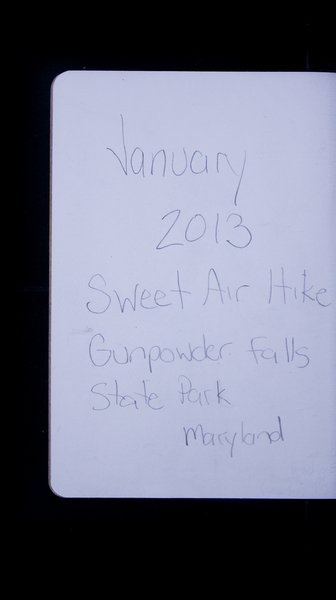 January
2013
Sweet Air Hike
Gunpowder Falls
State Park
Maryland